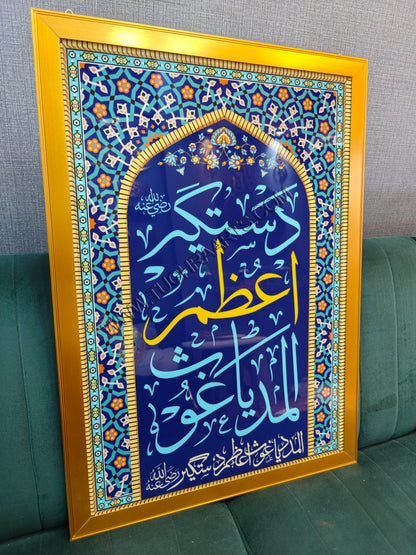 دستگیر رضی اللہ عنہ
اعظم
المدد یا غوث
المدد یا غوث اعظم دستگیر رضی اللہ عنہ